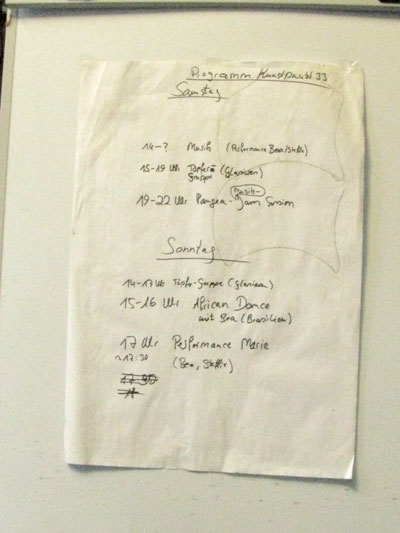 Programm Kunstpunkt 33
Samstag
14-? Musik (Performance Bea/Steffi)
15-19 Uhr Töpferei (Glasieren)
Gruppe
Musik-
19-22 Uhr Pangea- Jam Session
Sonntag
14-17 Uhr Töpfer-Gruppe (Glasieren)
15-16 Uhr African Dance
mit Bea (Brasilien)
17 Uhr Performance Marie
~17:30 (Bea, Steffi)